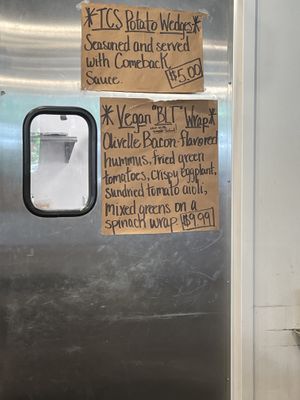 *TCS Potato Wedges*
Seasoned and served
with Comeback
Sauce.
$5.00
*Vegan "BLT" Wrap*
Olivelle Bacon-flavored
hummus, fried green
tomatoes, crispy eggplant,
sundried tomato aioli,
mixed greens on a
spinach wrap. $9.99